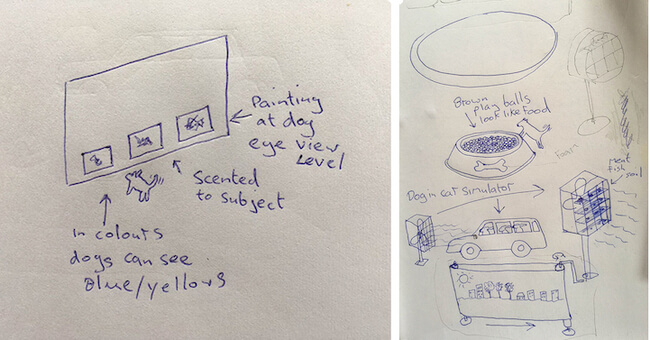 Painting
at dog
eye view
Level
Scented
to subject
in colours
dogs can see
Blue/yellows
Brown
play balls
look like food
Dog in car simulator
meat
fish